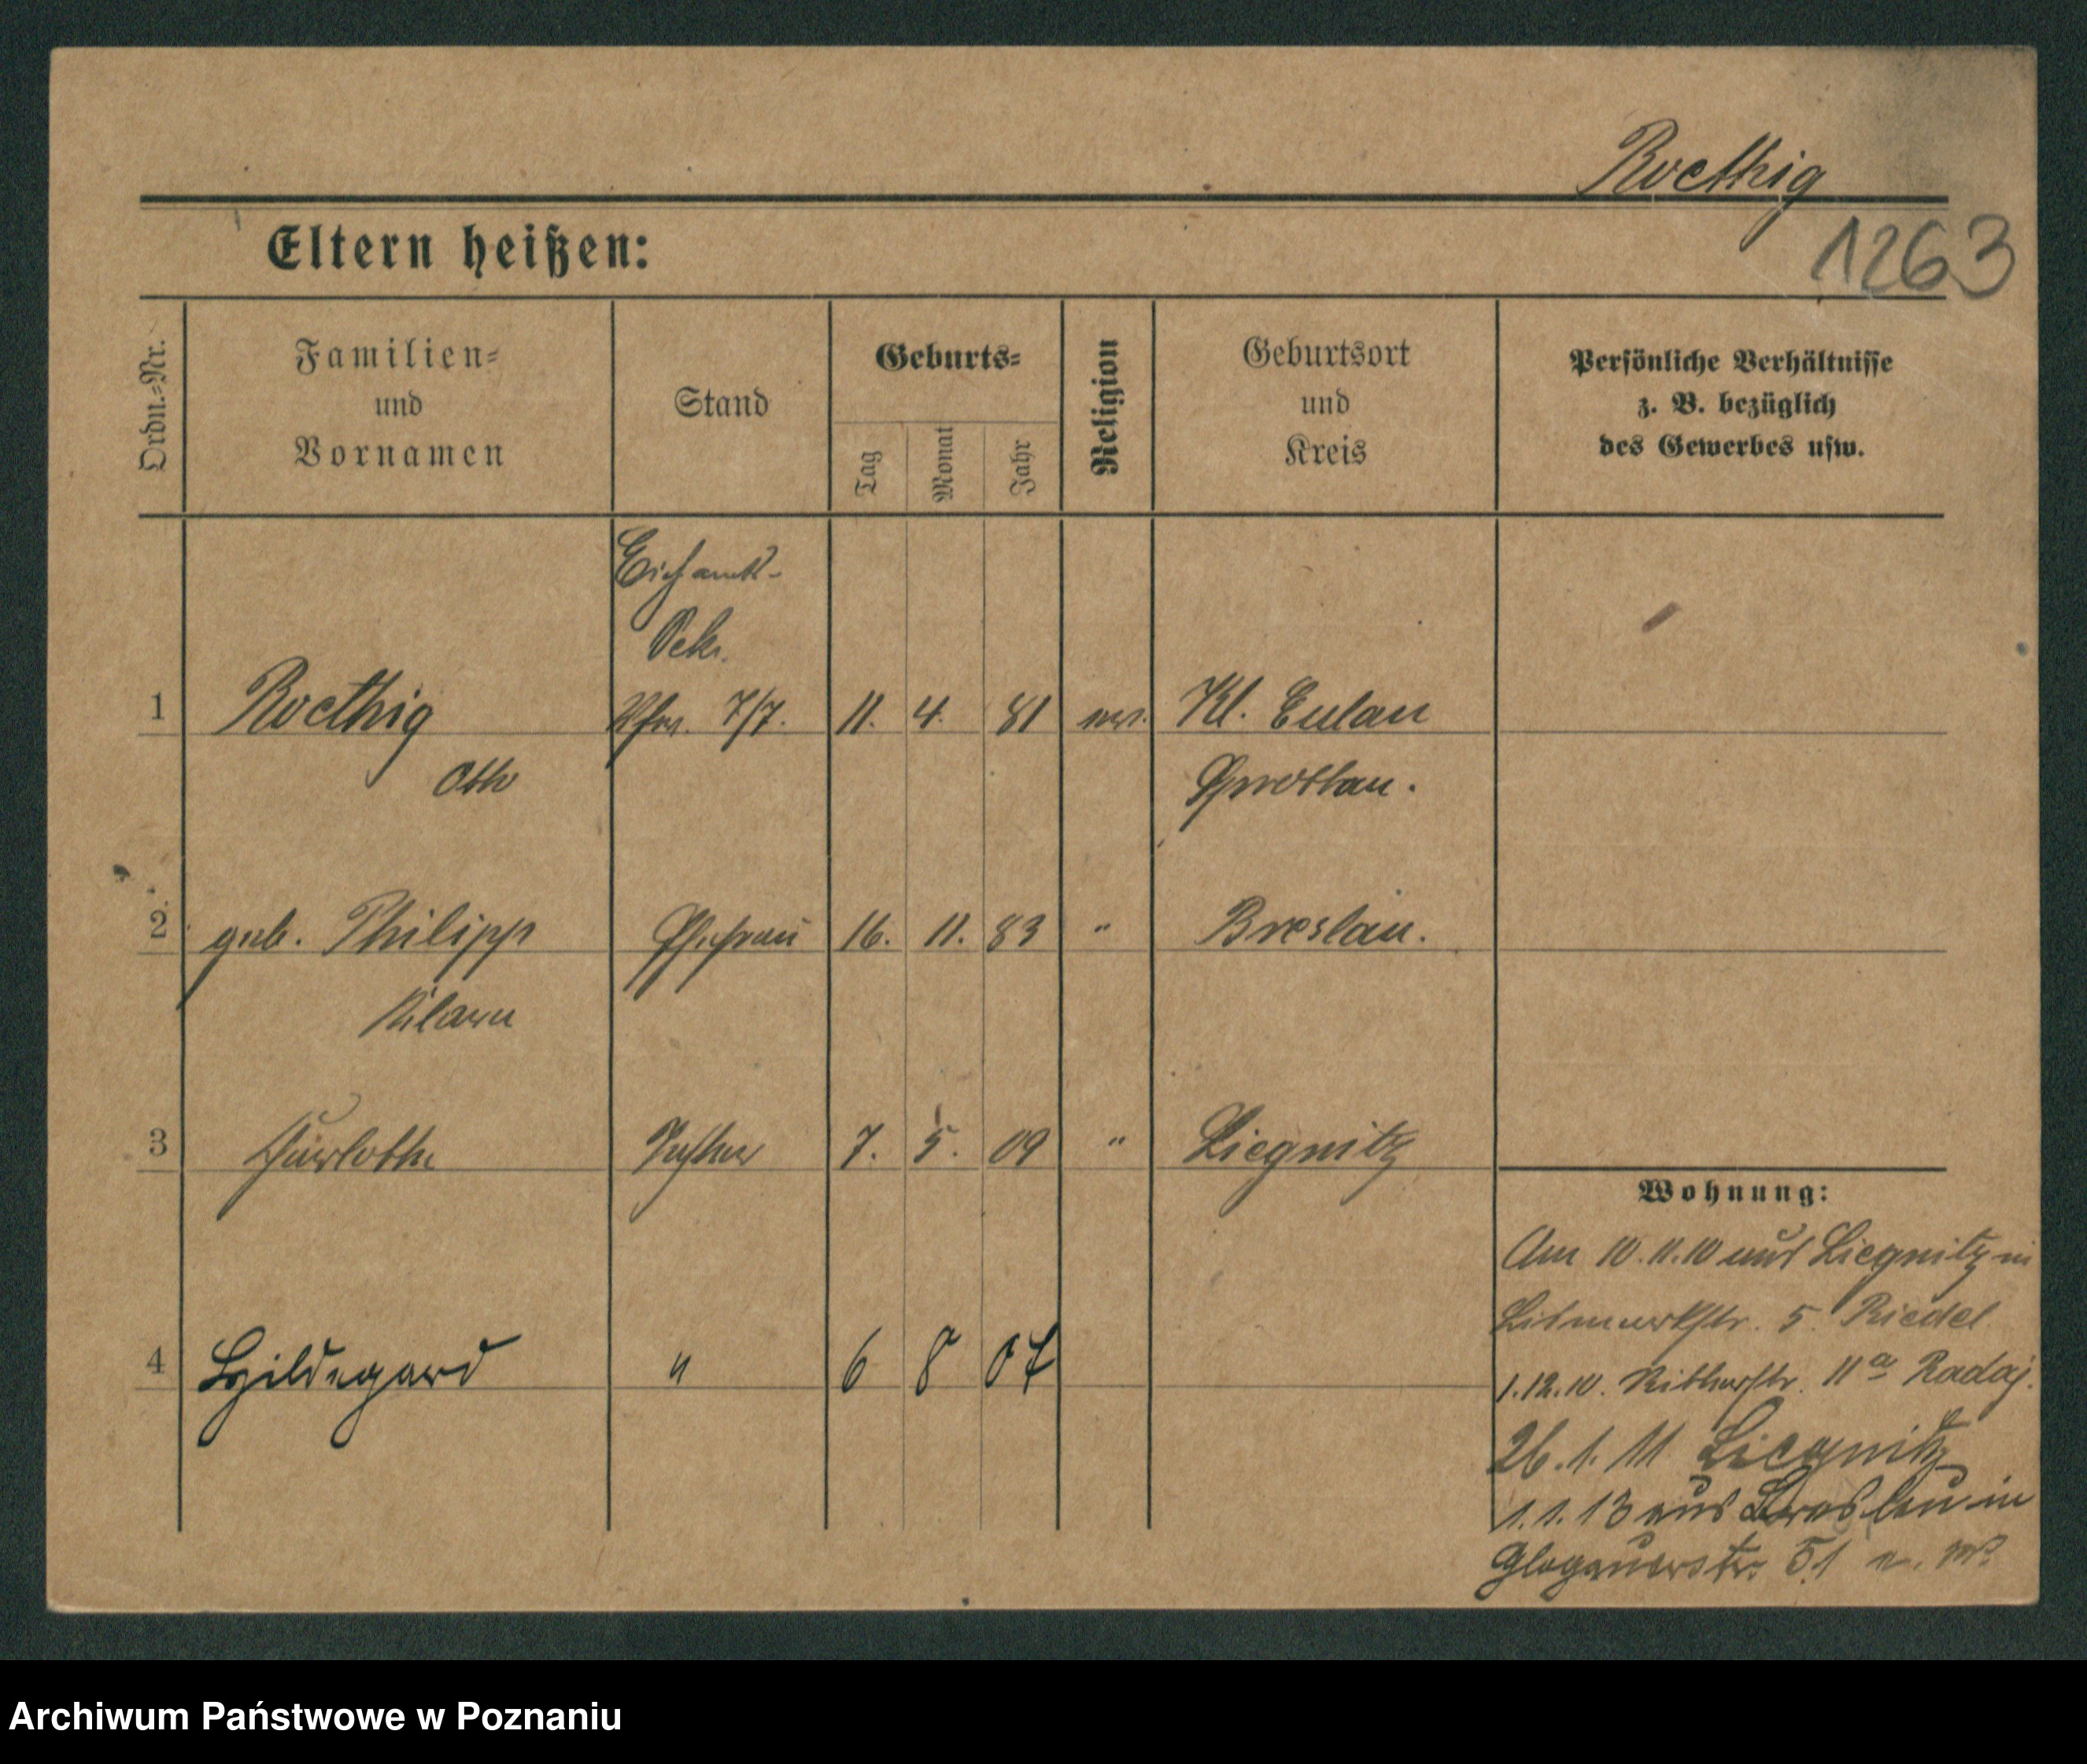 Roethig
1263
Eltern heißen:
Ordn.=Nr.
Familien=
und
Vornamen
Stand
Geburts=
Tag
Monat
Jahr
Religion
Geburtsort
und
Kreis
Persönliche Verhältnisse
z. B. bezüglich
des Gewerbes usw.
Eichamts-
Sekr.
1 Roethig 7/7. 11. 4. 81 ev. Kl. Eulau
Otto Sprottau.
2 geb. Philipp Ehefrau 16. 11. 83 " Breslau.
Klara
3 Tochter 7. 5. 09 " Liegnitz
Wohnung:
Am 10.11.10 aus Liegnitz in
5. Riedel
4 Hildegard " 6 8 07
1.12.10. Ritterstr. 11a Radaj.
26.1.11 Liegnitz
1.1.13 aus Breslau in
Glogauerstr. 51
Archiwum Państwowe w Poznaniu